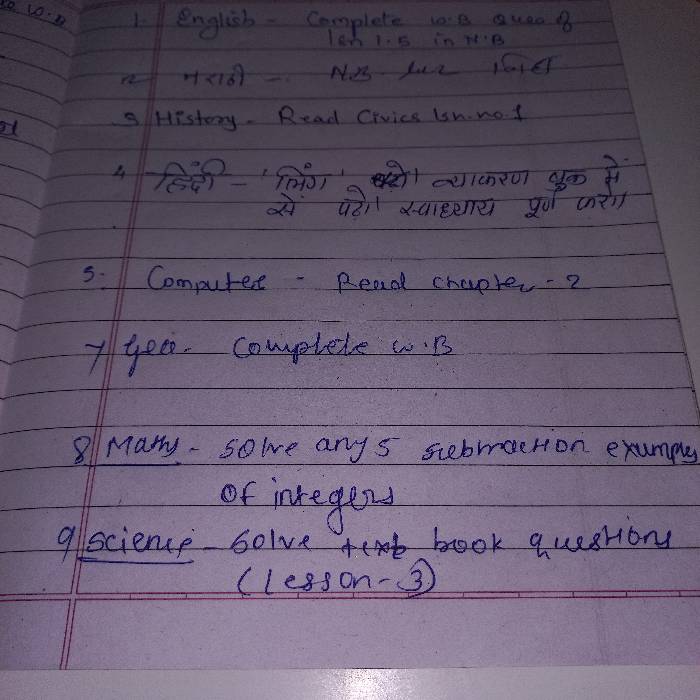 W.B
1. English - Complete W.B Ques of
lsn 1.5 in N.B
2 मराठी - N.B. वर लिहा
3 History - Read Civics lsn.no.1
4 हिंदी - 'लिंग' व्याकरण बुक में
से पढो। स्वाध्याय पूर्ण करो।
5. Computer - Read chapter - 2
7 Geo. Complete W.B
8 Maths - Solve any 5 subtraction examples
of integers
9 Science - Solve text book questions
(lesson - 3)